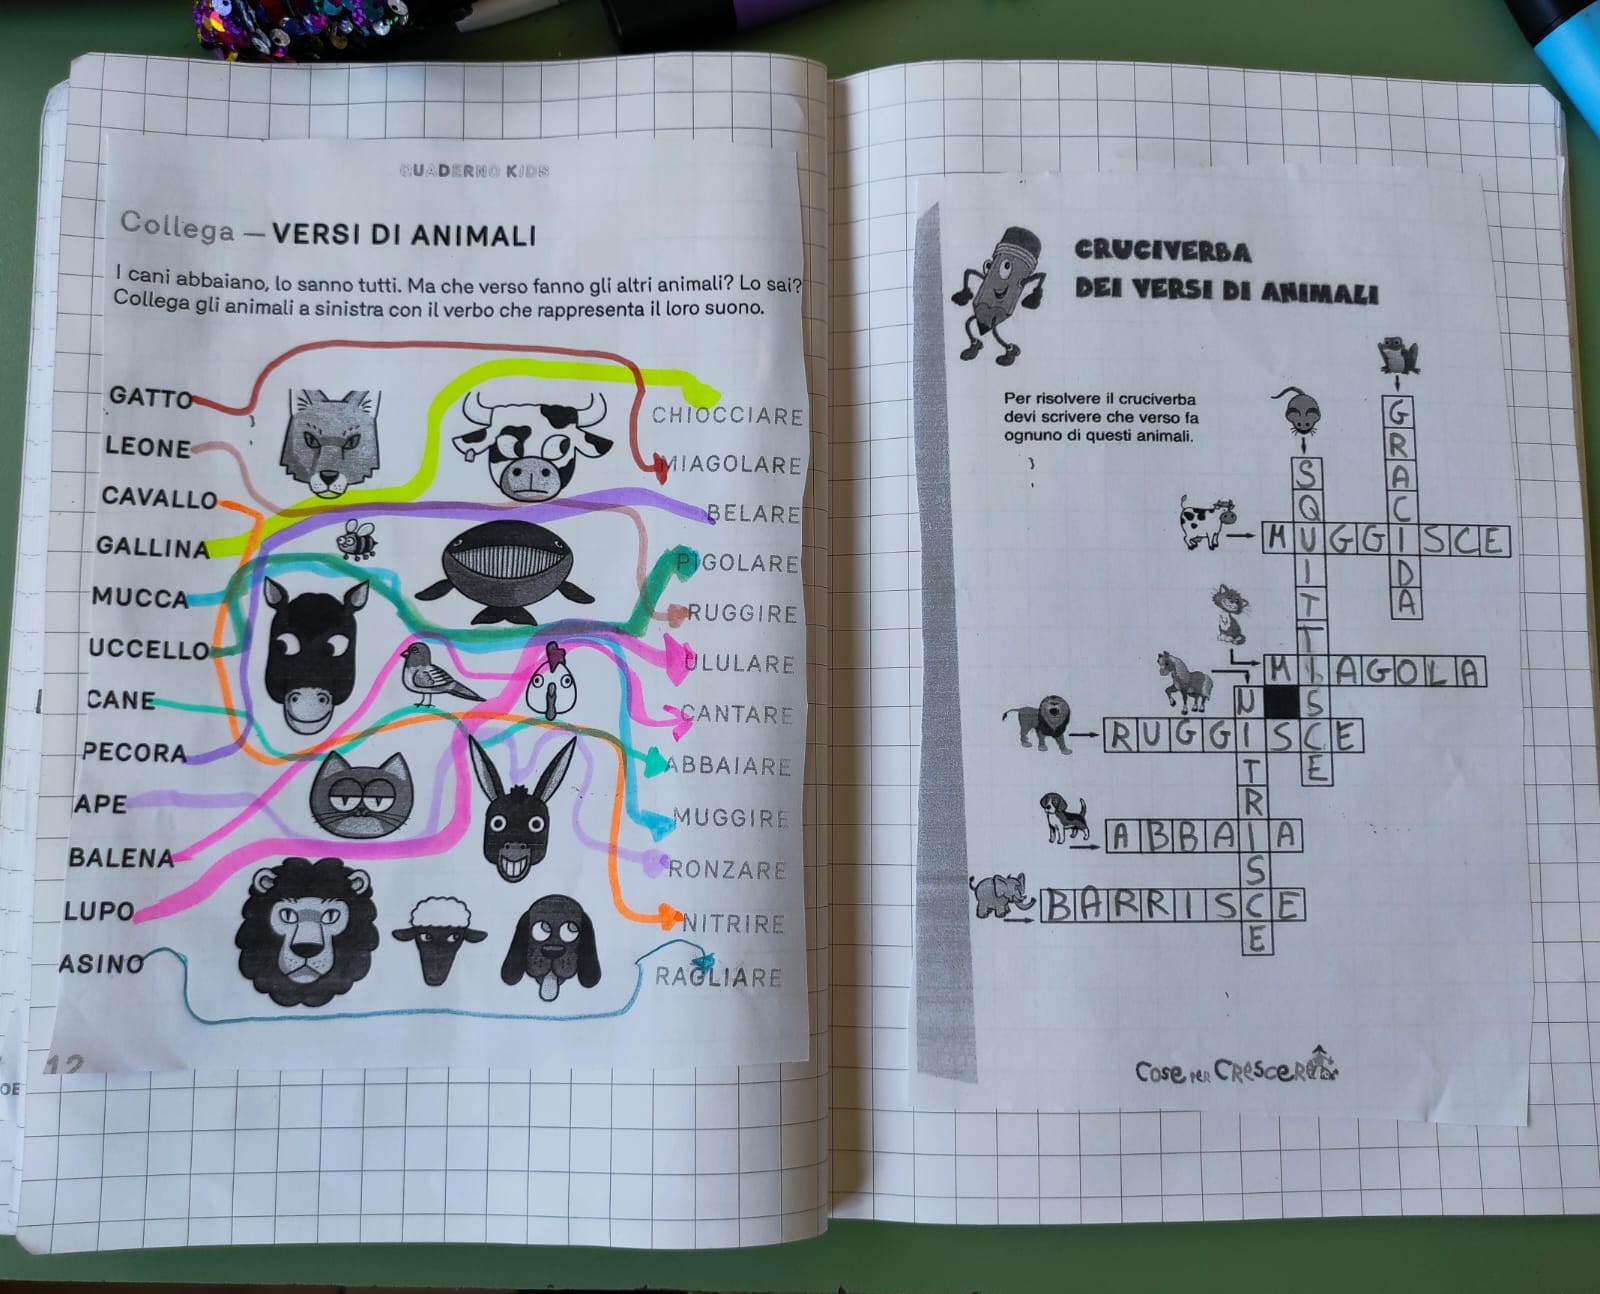 QUADERNO KIDS
Collega — VERSI DI ANIMALI
I cani abbaiano, lo sanno tutti. Ma che verso fanno gli altri animali? Lo sai?
Collega gli animali a sinistra con il verbo che rappresenta il loro suono.
GATTO
LEONE
CAVALLO
GALLINA
MUCCA
UCCELLO
CANE
PECORA
APE
BALENA
LUPO
ASINO
CHIOCCIARE
MIAGOLARE
BELARE
PIGOLARE
RUGGIRE
ULULARE
CANTARE
ABBAIARE
MUGGIRE
RONZARE
NITRIRE
RAGLIARE
12
OE
CRUCIVERBA
DEI VERSI DI ANIMALI
Per risolvere il cruciverba
devi scrivere che verso fa
ognuno di questi animali.
GRACIDA
SQUITTISCE
MUGGISCE
MIAGOLA
NITRISCE
RUGGISCE
ABBAIA
BARRISCE
COSE PER CRESCERE